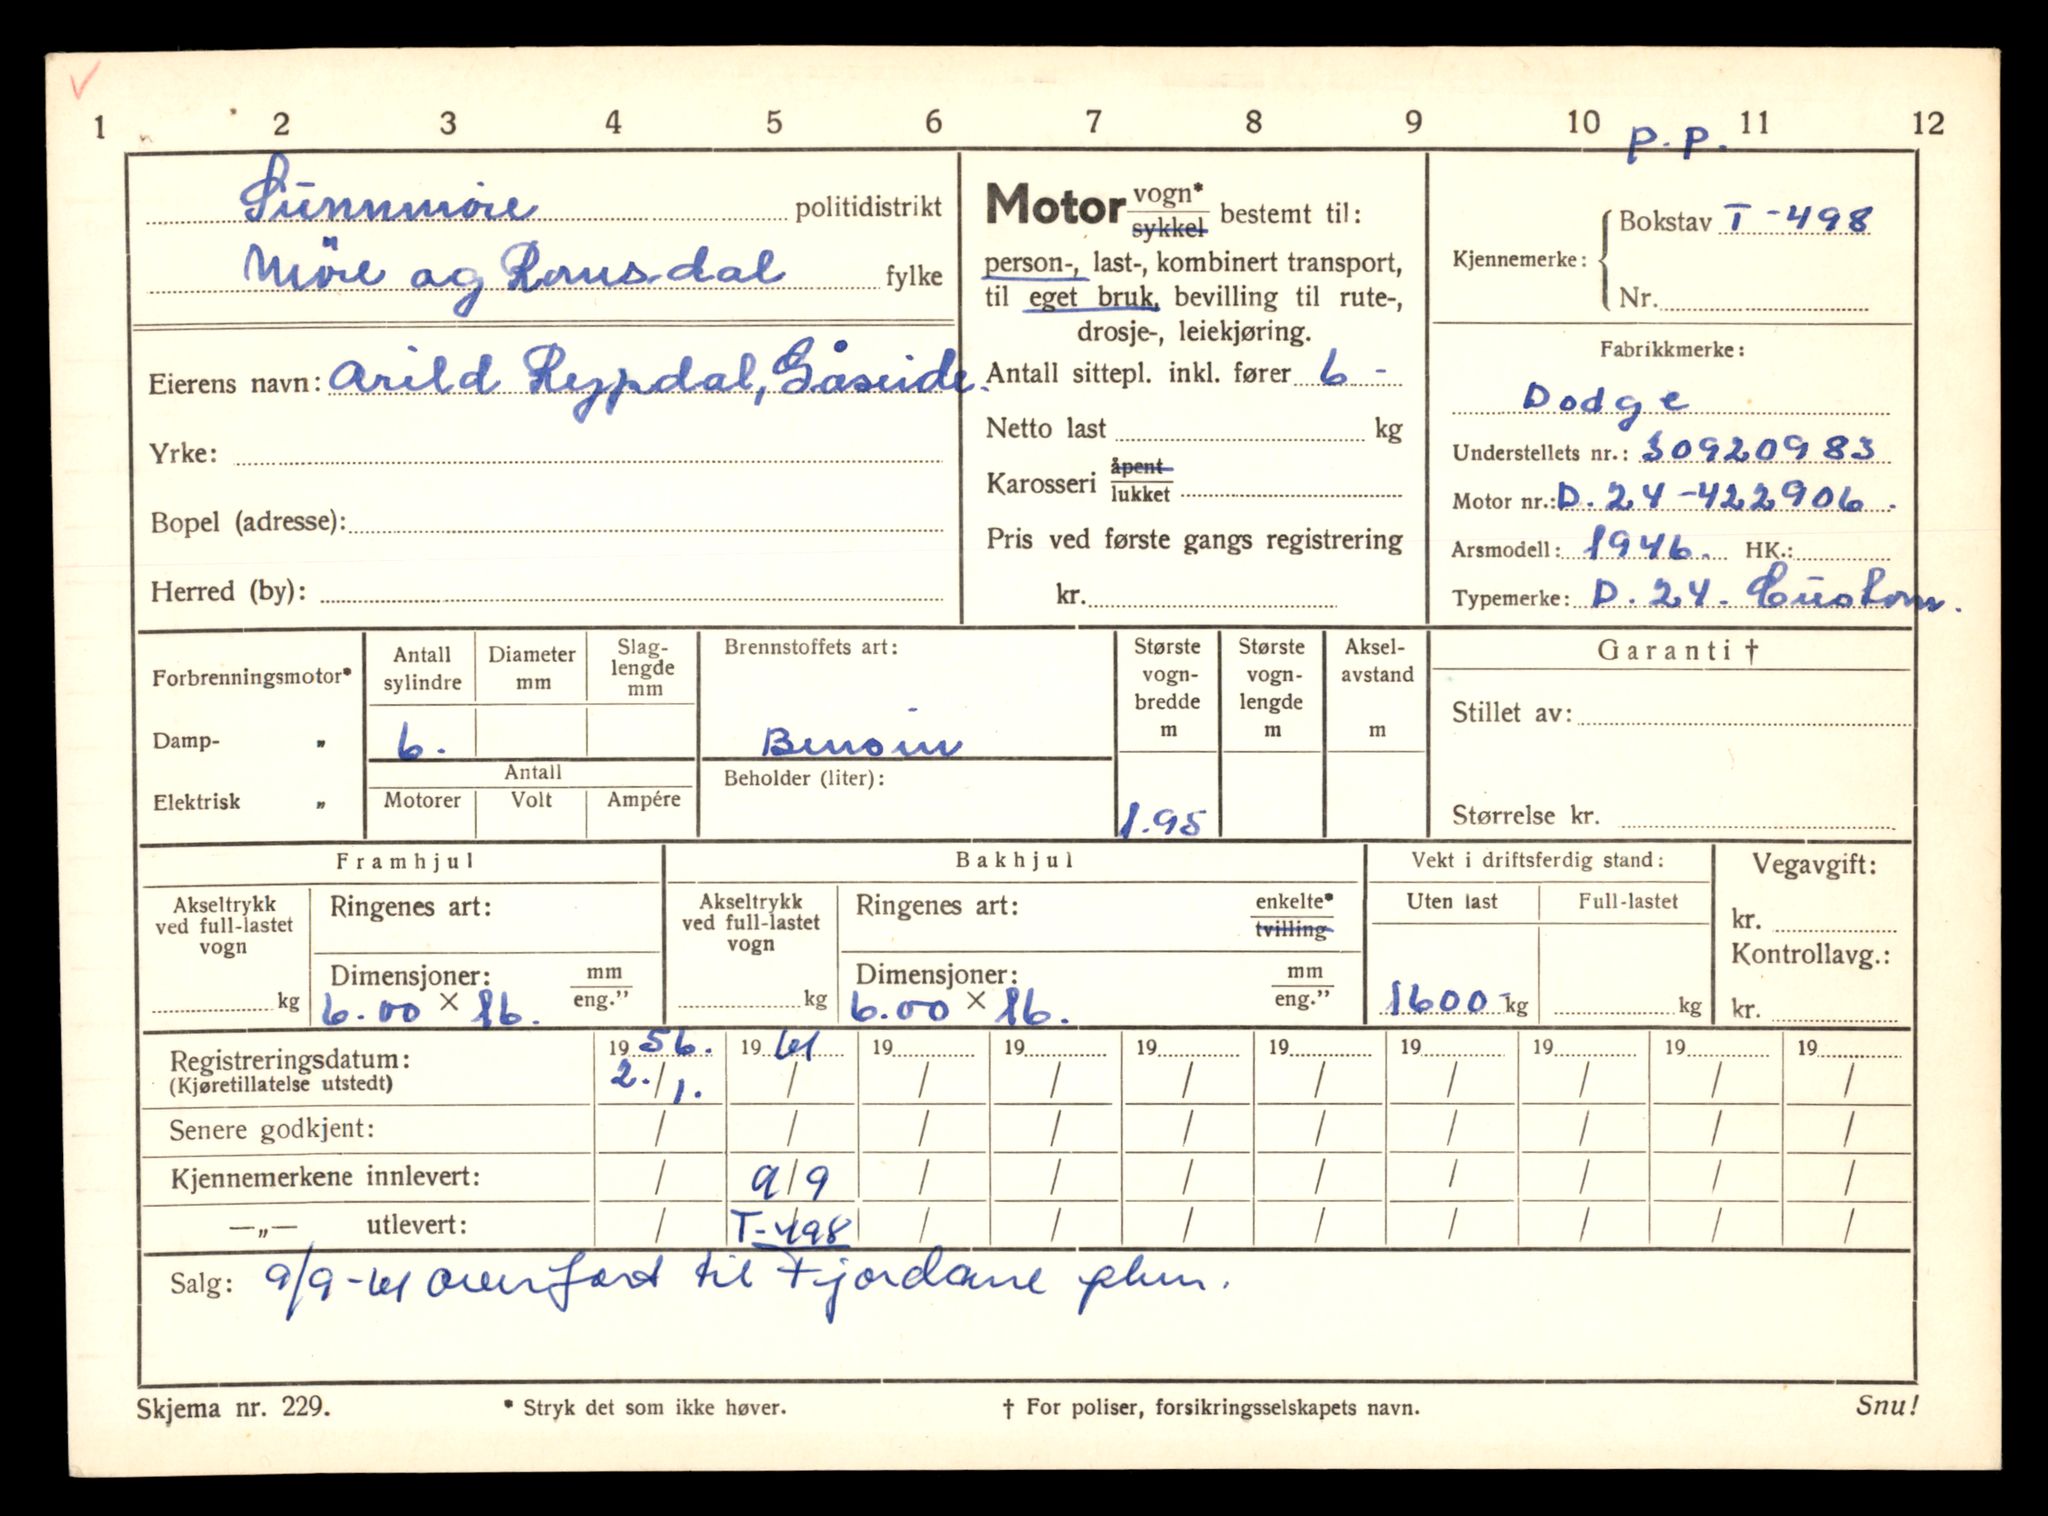 1 2 3 4 5 6 7 8 9 10 11 12
P. P.
Sunnmöre politidistrikt
Möre og Romsdal fylke
Eierens navn: Arild Rypdal, Gåseide.
Yrke:
Bopel (adresse):
Herred (by):
Motor vogn* / sykkel bestemt til:
person-, last-, kombinert transport,
til eget bruk, bevilling til rute-,
drosje-, leiekjøring.
Antall sittepl. inkl. fører 6 -
Netto last kg
Karosseri åpent / lukket
Pris ved første gangs registrering
kr.
Kjennemerke: Bokstav T-498
Nr.
Fabrikkmerke:
Dodge
Understellets nr.: 30920983
Motor nr.: D.24-422906.
Arsmodell: 1946. HK.:
Typemerke: D.24. Custom.
Forbrenningsmotor*
Damp- „
Elektrisk „
Antall sylindre
Diameter mm
Slag-
lengde
mm
6.
Antall
Motorer Volt Ampére
Brennstoffets art:
Bensin
Beholder (liter):
Største
vogn-
bredde
m
1.95
Største
vogn-
lengde
m
Aksel-
avstand
m
Garanti †
Stillet av:
Størrelse kr.
Framhjul
Akseltrykk
ved full-lastet
vogn
kg
Ringenes art:
Dimensjoner: mm / eng.”
6.00 × 16.
Bakhjul
Akseltrykk
ved full-lastet
vogn
kg
Ringenes art: enkelte* / tvilling
Dimensjoner: mm / eng.”
6.00 × 16.
Vekt i driftsferdig stand:
Uten last Full-lastet
1600 kg kg
Vegavgift:
kr.
Kontrollavg.:
kr.
Registreringsdatum: 1956. 1961 19 19 19 19 19 19 19 19
(Kjøretillatelse utstedt) 2./1. / / / / / / / / /
Senere godkjent: / / / / / / / / / /
Kjennemerkene innlevert: / 9/9 / / / / / / / /
—„— utlevert: / T-498 / / / / / / / /
Salg: 9/9-61 overført til Fjordane pkm.
Skjema nr. 229. * Stryk det som ikke høver. † For poliser, forsikringsselskapets navn. Snu!